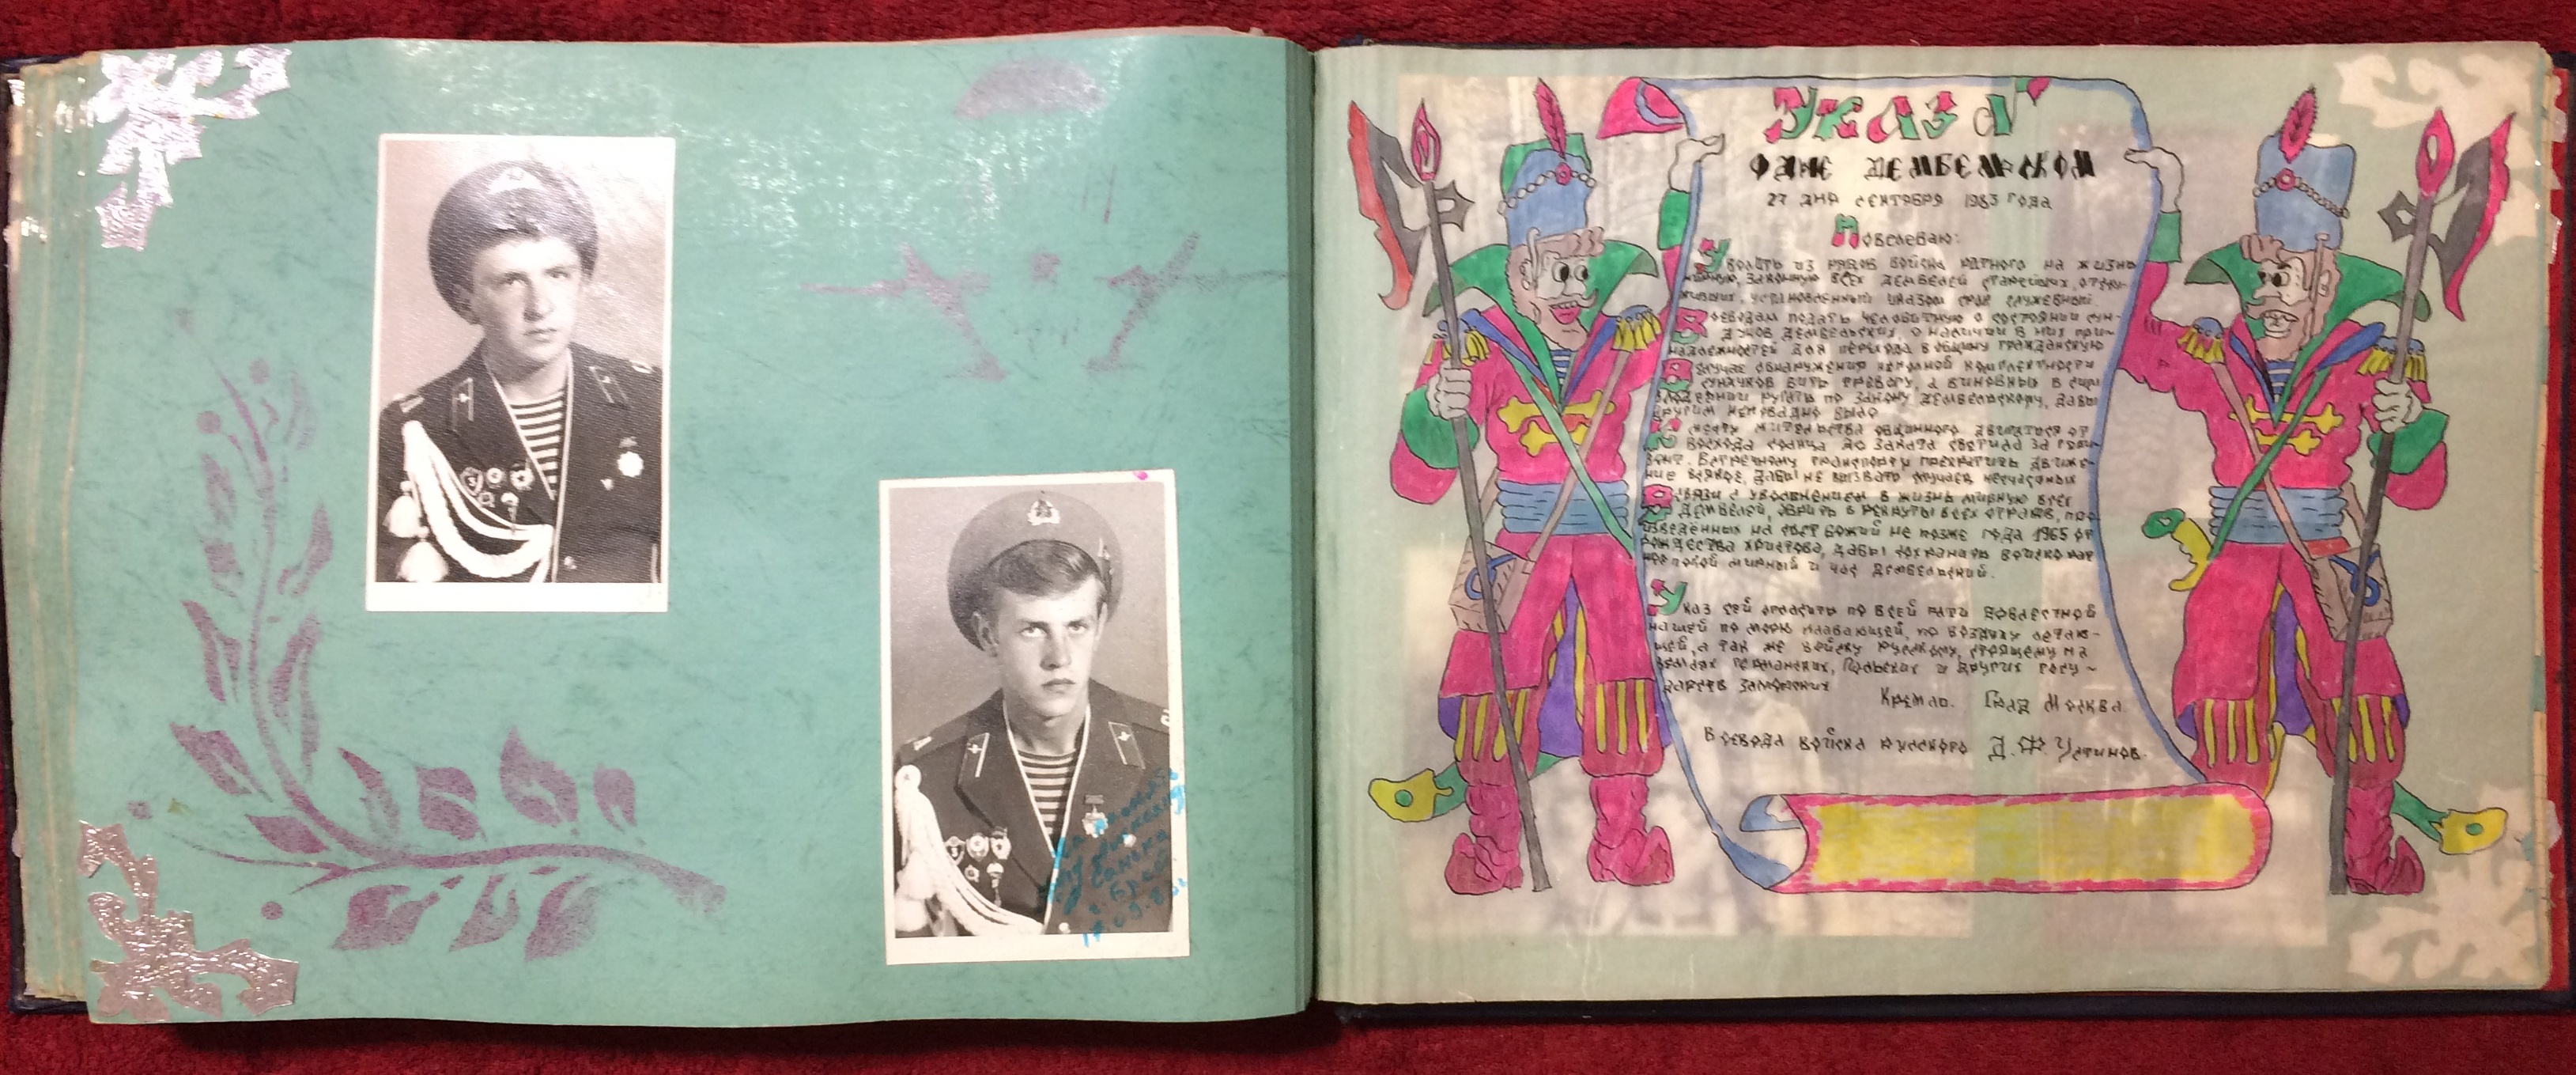 на память
другу
Саньки
г. Брест
Указ
о дне дембельском
27 дня сентября 1983 года
Повелеваю:
Уволить из рядов войска ратного на жизнь
мирную, законную всех дембелей старейших, отслу-
живших, установленный указом срок служебный.
Воеводам подать челобитную о состоянии сун-
дуков дембельских, о наличии в них при-
надлежностей для перехода в общину гражданскую
В случае обнаружения неполной комплектности
сундуков бить тревогу, а виновных в сим
ругать по закону дембельскому, дабы
другим неповадно было
К месту жительства общинного двигаться от
восхода солнца до заката светила за гори-
зонт. Встречному транспорту прекратить движе-
ние всякое, дабы не вызвать случаев несчастных
В связи с увольнением в жизнь мирную всех
дембелей, обрить в рекруты всех отроков, про-
изведённых на свет божий не позже года 1965 от
рождества христова, дабы сохранить войско
мирный и час дембельский.
Указ сей огласить по всей рати доблестной
нашей по морю плавающей, по воздуху летаю-
щей, а так же войску русскому, стоящему на
землях германских, Польских и других госу-
дарств заморских
Кремль. Град Москва
Воевода войска русского Д.Ф. Устинов.